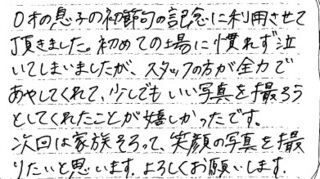 0才の息子の初節句の記念に利用させて
頂きました。初めての場に慣れず泣
いてしまいましたが、スタッフの方が全力で
あやしてくれて、少しでもいい写真を撮ろう
としてくれたことが嬉しかったです。
次回は家族そろって、笑顔の写真を撮
りたいと思います。よろしくお願いします。